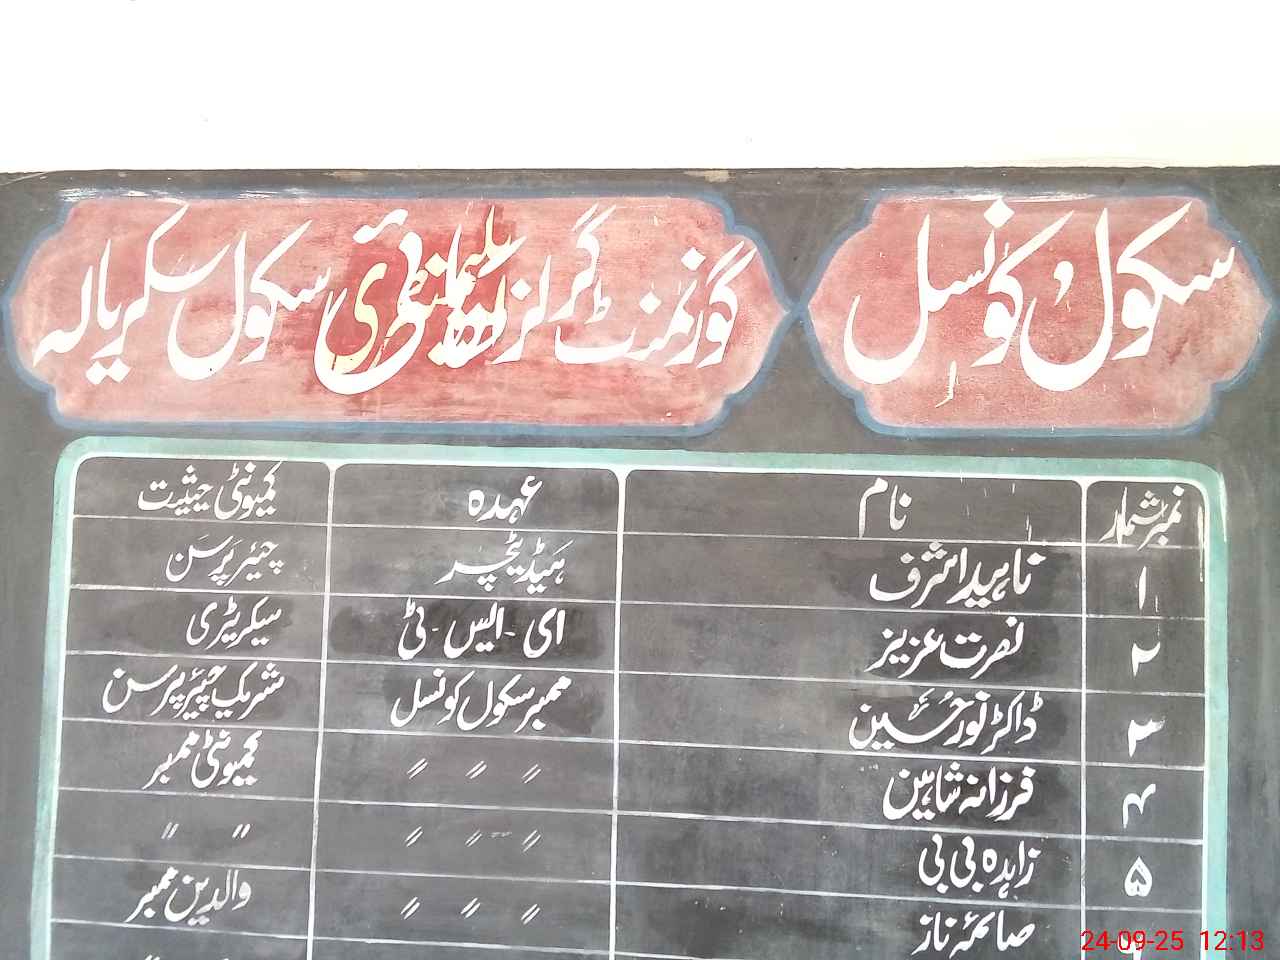 سکول کونسل
گورنمنٹ گرلز ایلیمنٹری سکول سکریالہ
نمبر شمار نام عہدہ کمیونٹی حیثیت
۱ ناہید اشرف ہیڈ ٹیچر چیئر پرسن
۲ نصرت عزیز ای ۔ ایس ۔ ٹی سیکریٹری
۳ ڈاکٹر نور حسین ممبر سکول کونسل شریک چیئر پرسن
۴ فرزانہ شاہین 〃 〃 〃 کمیونٹی ممبر
۵ زاہدہ بی بی 〃 〃 〃 〃 〃
صائمہ ناز 〃 〃 〃 والدین ممبر
24-09-25 12:13